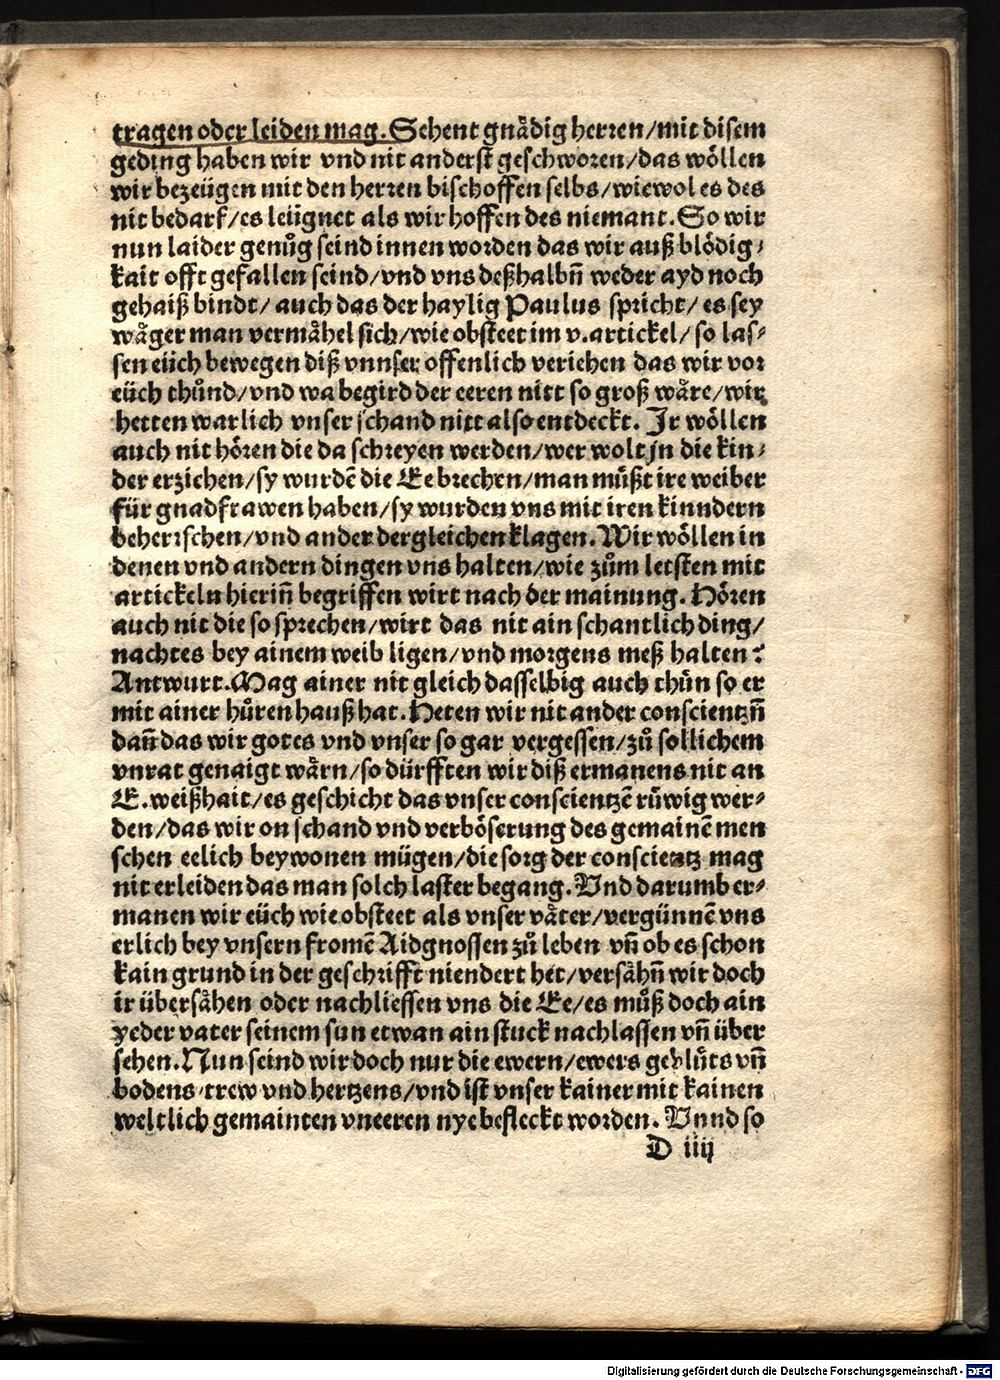 tragen oder leiden mag. Sehent gnådig herren/mit disem
geding haben wir vnd nit anderst geschworen/das wöllen
wir bezeügen mit den herren bischoffen selbs/wiewol es des
nit bedarf/es leügnet als wir hoffen des niemant. So wir
nun laider genůg seind innen worden das wir auß blödig⸗
kait offt gefallen seind/vnd vns deßhalbn̄ weder ayd noch
gehaiß bindt/ auch das der haylig Paulus spricht/ es sey
wåger man vermåhel sich/wie obsteet im v. artickel/ so las⸗
sen eüch bewegen diß vnnser offenlich veriehen das wir vor
eüch thůnd/vnd wa begird der eeren nitt so groß wåre/wir
hetten warlich vnser schand nitt also entdeckt. Jr wöllen
auch nit hören die da schreyen werden/wer wolt jn die kin⸗
der erziehen/sy wurdē die Ee brechen/man můßt ire weiber
für gnadfrawen haben/sy wurden vns mit iren kinndern
beherrschen/vnd ander dergleichen klagen. Wir wöllen in
denen vnd andern dingen vns halten/wie zům letsten mit
artickeln hierin̄ begriffen wirt nach der mainung. Hören
auch nit die so sprechen/wirt das nit ain schantlich ding/
nachtes bey ainem weib ligen/vnd morgens meß halten?
Antwurt. Mag ainer nit gleich dasselbig auch thůn so er
mit ainer hůren hauß hat. Heten wir nit ander conscientzn̄
dan̄ das wir gotes vnd vnser so gar vergessen/zů sollichem
vnrat genaigt wårn/so dürfften wir diß ermanens nit an
E. weißhait/es geschicht das vnser conscientzē růwig wer⸗
den/das wir on schand vnd verböserung des gemainē men
schen eelich beywonen mügen/die sorg der conscientz mag
nit erleiden das man solch laster begang. Vnd darumb er⸗
manen wir eüch wie obsteet als vnser våter/vergünnē vns
erlich bey vnsern fromē Aidgnossen zů leben vn̄ ob es schon
kain grund in der geschrifft niendert het/versåhn̄ wir doch
ir übersåhen oder nachliessen vns die Ee/es můß doch ain
yeder vater seinem sun etwan ain stuck nachlassen vn̄ über
sehen. Nun seind wir doch nur die ewern/ewers geblůts vn̄
bodens/trew vnd hertzens/vnd ist vnser kainer mit kainen
weltlich gemainten vneeren nye befleckt worden. Vnnd so
D iiij
Digitalisierung gefördert durch die Deutsche Forschungsgemeinschaft - DFG